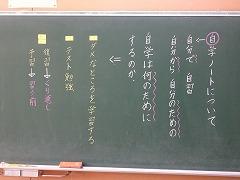 自学ノートについて
←自分で 自習
自分から 自分のための
自学は何のために
するのか。
⇐
ダメなところを学習する
テスト勉強
復習→くり返し
予習→習う前